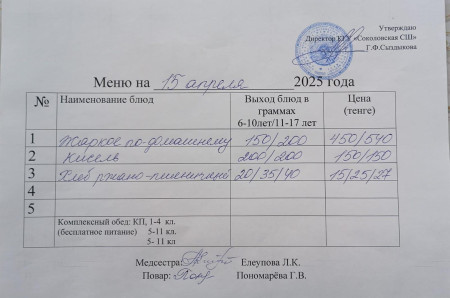 Утверждаю
Директор КГУ «Соколовская СШ»
Г.Ф.Сыздыкова
Меню на 15 апреля 2025 года
№ Наименование блюд Выход блюд в граммах 6-10лет/11-17 лет Цена (тенге)
1 Жаркое по-домашнему 150/200 450/540
2 Кисель 200/200 150/150
3 Хлеб ржано-пшеничный 20/35/40 15/25/27
4
5
Комплексный обед: КП, 1-4 кл.
(бесплатное питание) 5-11 кл.
5- 11 кл
Медсестра: Елеупова Л.К.
Повар: Пономарёва Г.В.